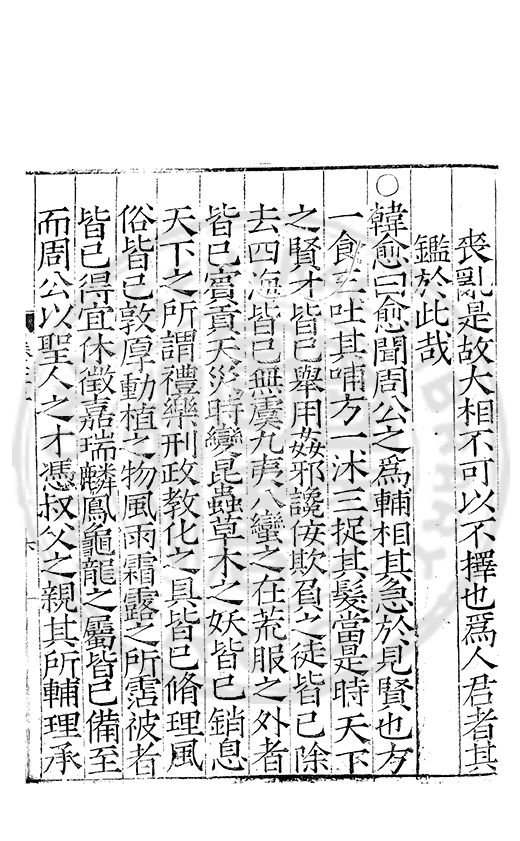 喪亂是故大相不可以不擇也爲人君者其
鑑於此哉
○韓愈曰愈聞周公之爲輔相其急於見賢也方
一飡三吐其哺方一沐三捉其髮當是時天下
之賢才皆已舉用姦邪讒佞欺負之徒皆已除
去四海皆已無虞九夷八蠻之在荒服之外者
皆已賓貢天災時變昆蟲草木之妖皆已銷息
天下之所謂禮樂刑政教化之具皆已脩理風
俗皆已敦厚動植之物風雨霜露之所霑被者
皆已得宜休徵嘉瑞麟鳳龜龍之屬皆已備至
而周公以聖人之才憑叔父之親其所輔理承